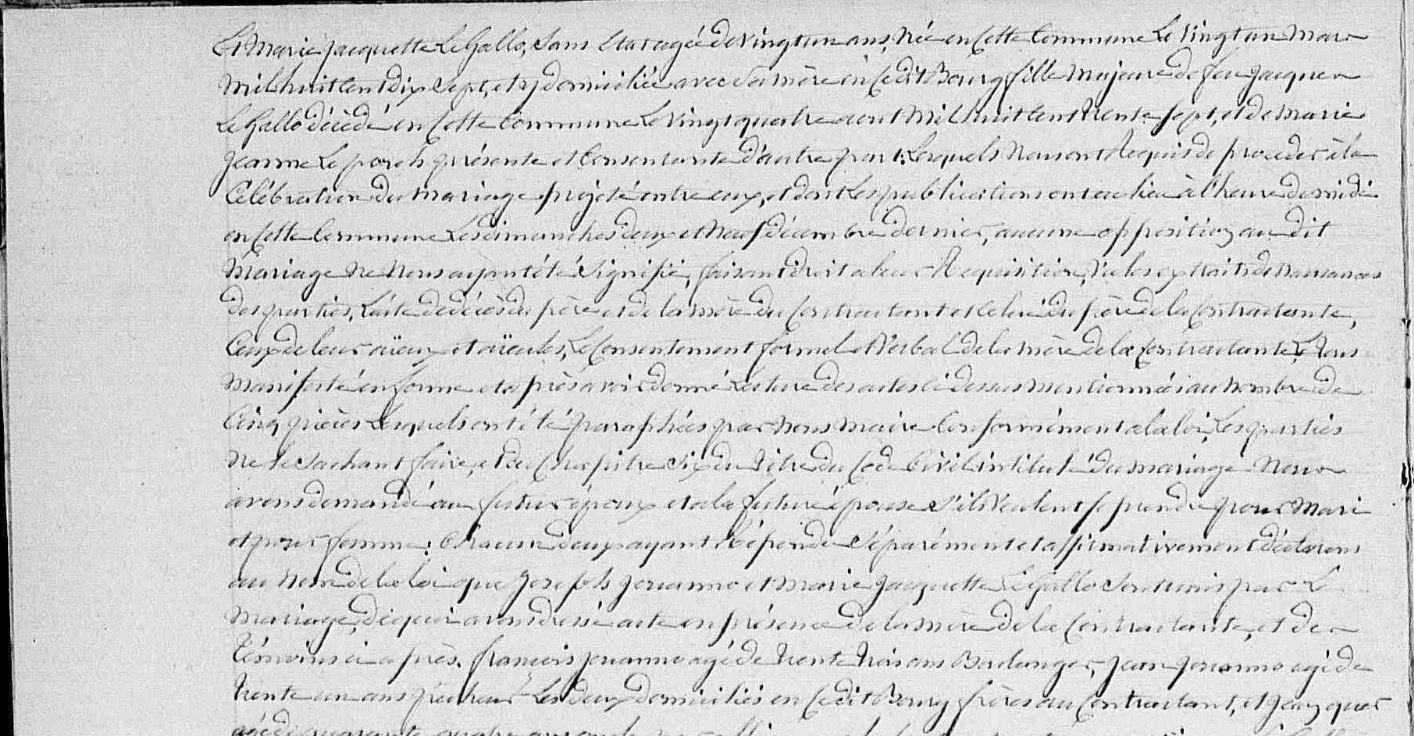 Et Marie jacquette Le Gallo, Sans Etat agée de vingt un ans, née en Cette Commune Le vingt un Mars
Mil huit Cent Dix Sept, et y domiciliée avec Sa mère en Ce dit Bourg fille Majeure de feu jacques
Le Gallo décédé en Cette Commune Le vingt quatre aout Mil huit Cent trente Sept, et de Marie
jeanne Le présente et Consentante d'autre part; Lesquels Nous ont Requis de procéder à la
Célébration du Mariage projeté entre eux, et dont Les publications ont eu lieu à l'heure de midi
en Cette Commune Les dimanches deux et Neuf décembre dernier, aucune opposition au dit
Mariage Ne Nous ayant été Signifié, faisant droit a leur Requisition, Vu les extraits de Naissances
des parties, L'acte de décès du père et de la mère du Contractant et Celui du père de la Contractante,
Ceux de leurs aïeux et aïeules, Le Consentement formel et Verbal de la mère de la Contractante, Nous
Manifesté en forme et après avoir donné Lecture des actes Ci dessus mentionnés au Nombre de
Cinq pièces Lesquels ont été paraphées par Nous Maire Conformément a la loi, Les parties
Ne le Sachant faire, et du Chapitre Six du titre du Code Civil intitulé du Mariage Nous
avons demandé au futur époux et a la future épouse S'ils Veulent Se prendre pour Mari
et pour femme; Chacun d'eux ayant Répondu Séparément et affirmativement déclarons
au Nom de la loi que joseph jouanno et Marie jacquette Le Gallo Sont unis par Le
Mariage, de quoi avons dressé acte en présence de la mère de la Contractante, et des
témoins ci après. françois jouanno agé de trente trois ans Boulanger, jean jouanno agé de
trente un ans Les deux domiciliés en Ce dit Bourg frères au Contractant, et jacques
agé de quarante quatre ans